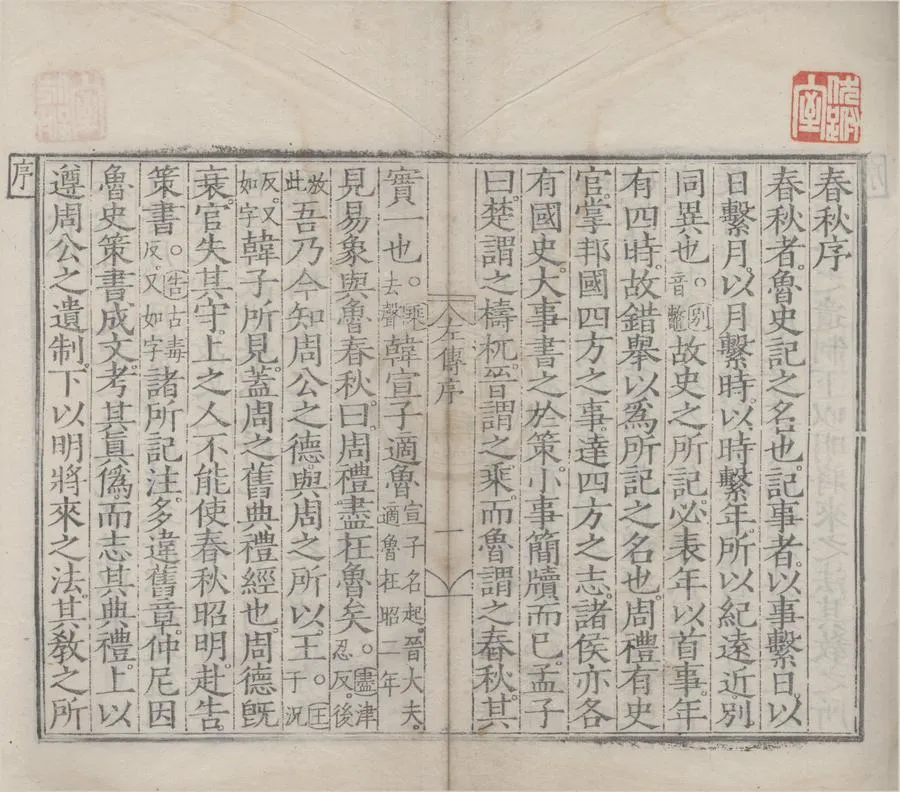 春秋序
春秋者。魯史記之名也。記事者。以事繫日。以
日繫月。以月繫時。以時繫年。所以紀遠近。別
同異也。○別音鼈故史之所記。必表年以首事。年
有四時。故錯舉以爲所記之名也。周禮有史
官。掌邦國四方之事。達四方之志。諸侯亦各
有國史。大事書之於策。小事簡牘而已。孟子
曰。楚謂之檮杌。晉謂之乘。而魯謂之春秋。其
左傳序 一
實一也。○乘去聲韓宣子適魯宣子名起。晉大夫。適魯在昭二年
見易象與魯春秋。曰。周禮盡在魯矣。○盡津忍反。後
放此吾乃今知周公之德。與周之所以王。○王于況
反。又如字韓子所見。蓋周之舊典禮經也。周德旣
衰。官失其守。上之人不能使春秋昭明。赴告
策書。○告古毒反。又如字諸所記注。多違舊章。仲尼因
魯史策書成文。考其眞僞。而志其典禮。上以
遵周公之遺制。下以明將來之法。其敎之所
序